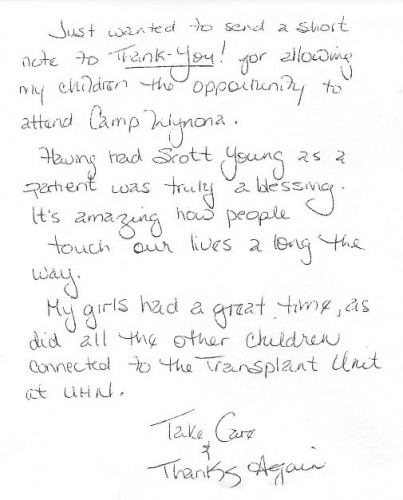 Just wanted to send a short
note to Thank-You! for allowing
my children the opportunity to
attend Camp Wynona.
Having had Scott Young as a
patient was truly a blessing.
It's amazing how people
touch our lives a long the
way.
My girls had a great time, as
did all the other children
connected to the Transplant Unit
at UHN.
Take Care
&
Thanks Again